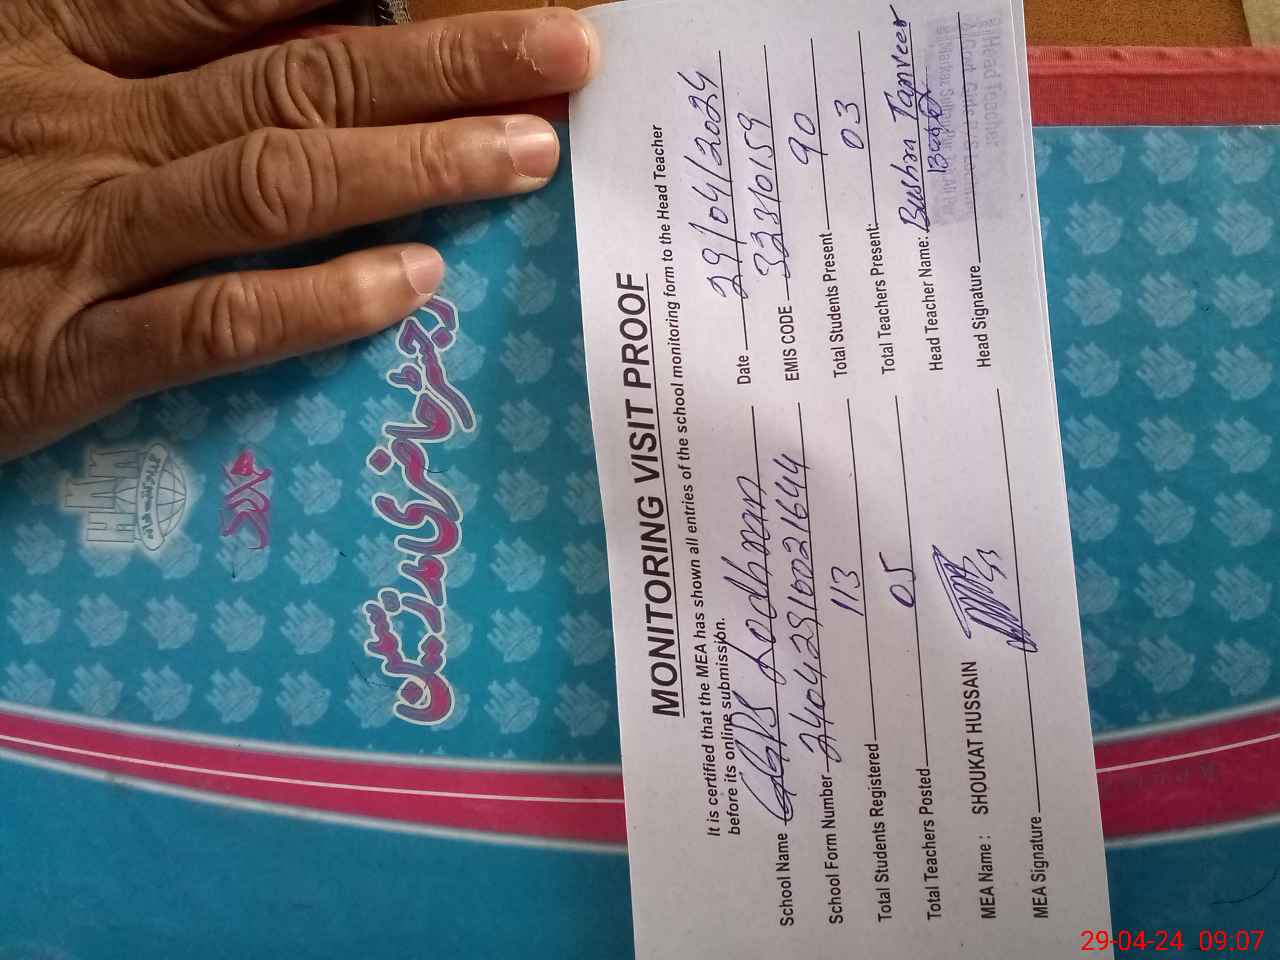 MONITORING VISIT PROOF
It is certified that the MEA has shown all entries of the school monitoring form to the Head Teacher
before its online submission.
School Name GGPS Lodhran Date 29/04/2024
School Form Number 24042910021644 EMIS CODE 32310159
Total Students Registered 113 Total Students Present 90
Total Teachers Posted 05 Total Teachers Present: 03
MEA Name : SHOUKAT HUSSAIN Head Teacher Name: Bushra Tanveer
MEA Signature Head Signature
رجسٹر حاضری مدرسین
جدید
29-04-24 09:07